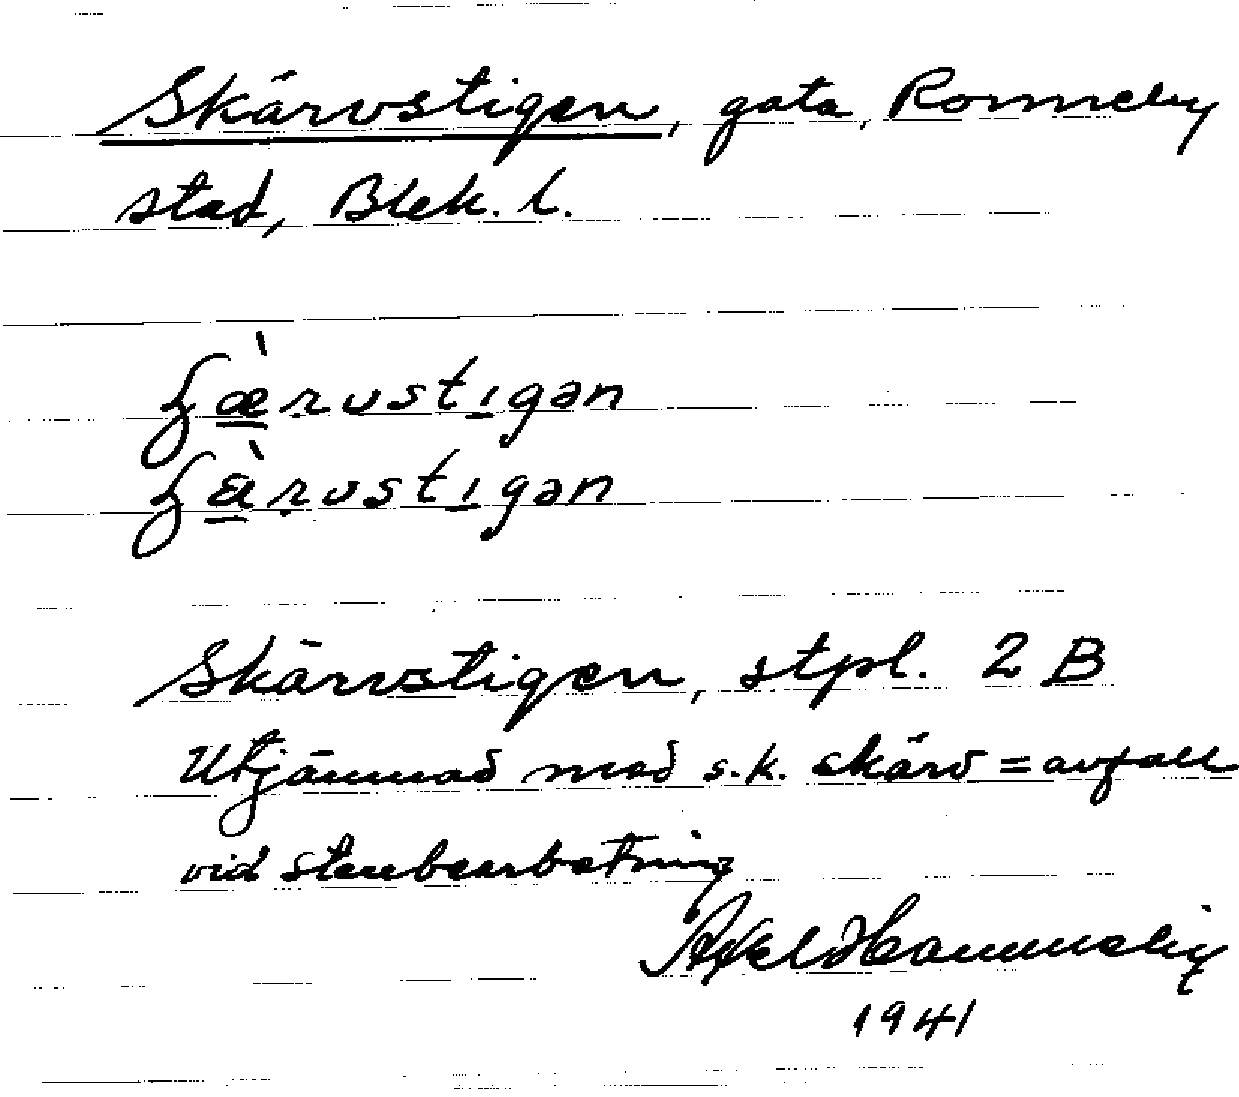 Skärvstigen, gata, Ronneby
stad, Blek. l.
ʃæ̀rvstıgən
ʃɛ̀rvstıgən
Skärvstigen, stpl. 2 B
Utjämnad med s.k. skärv = avfall
vid stenbearbetning
Axel Hammelin
1941